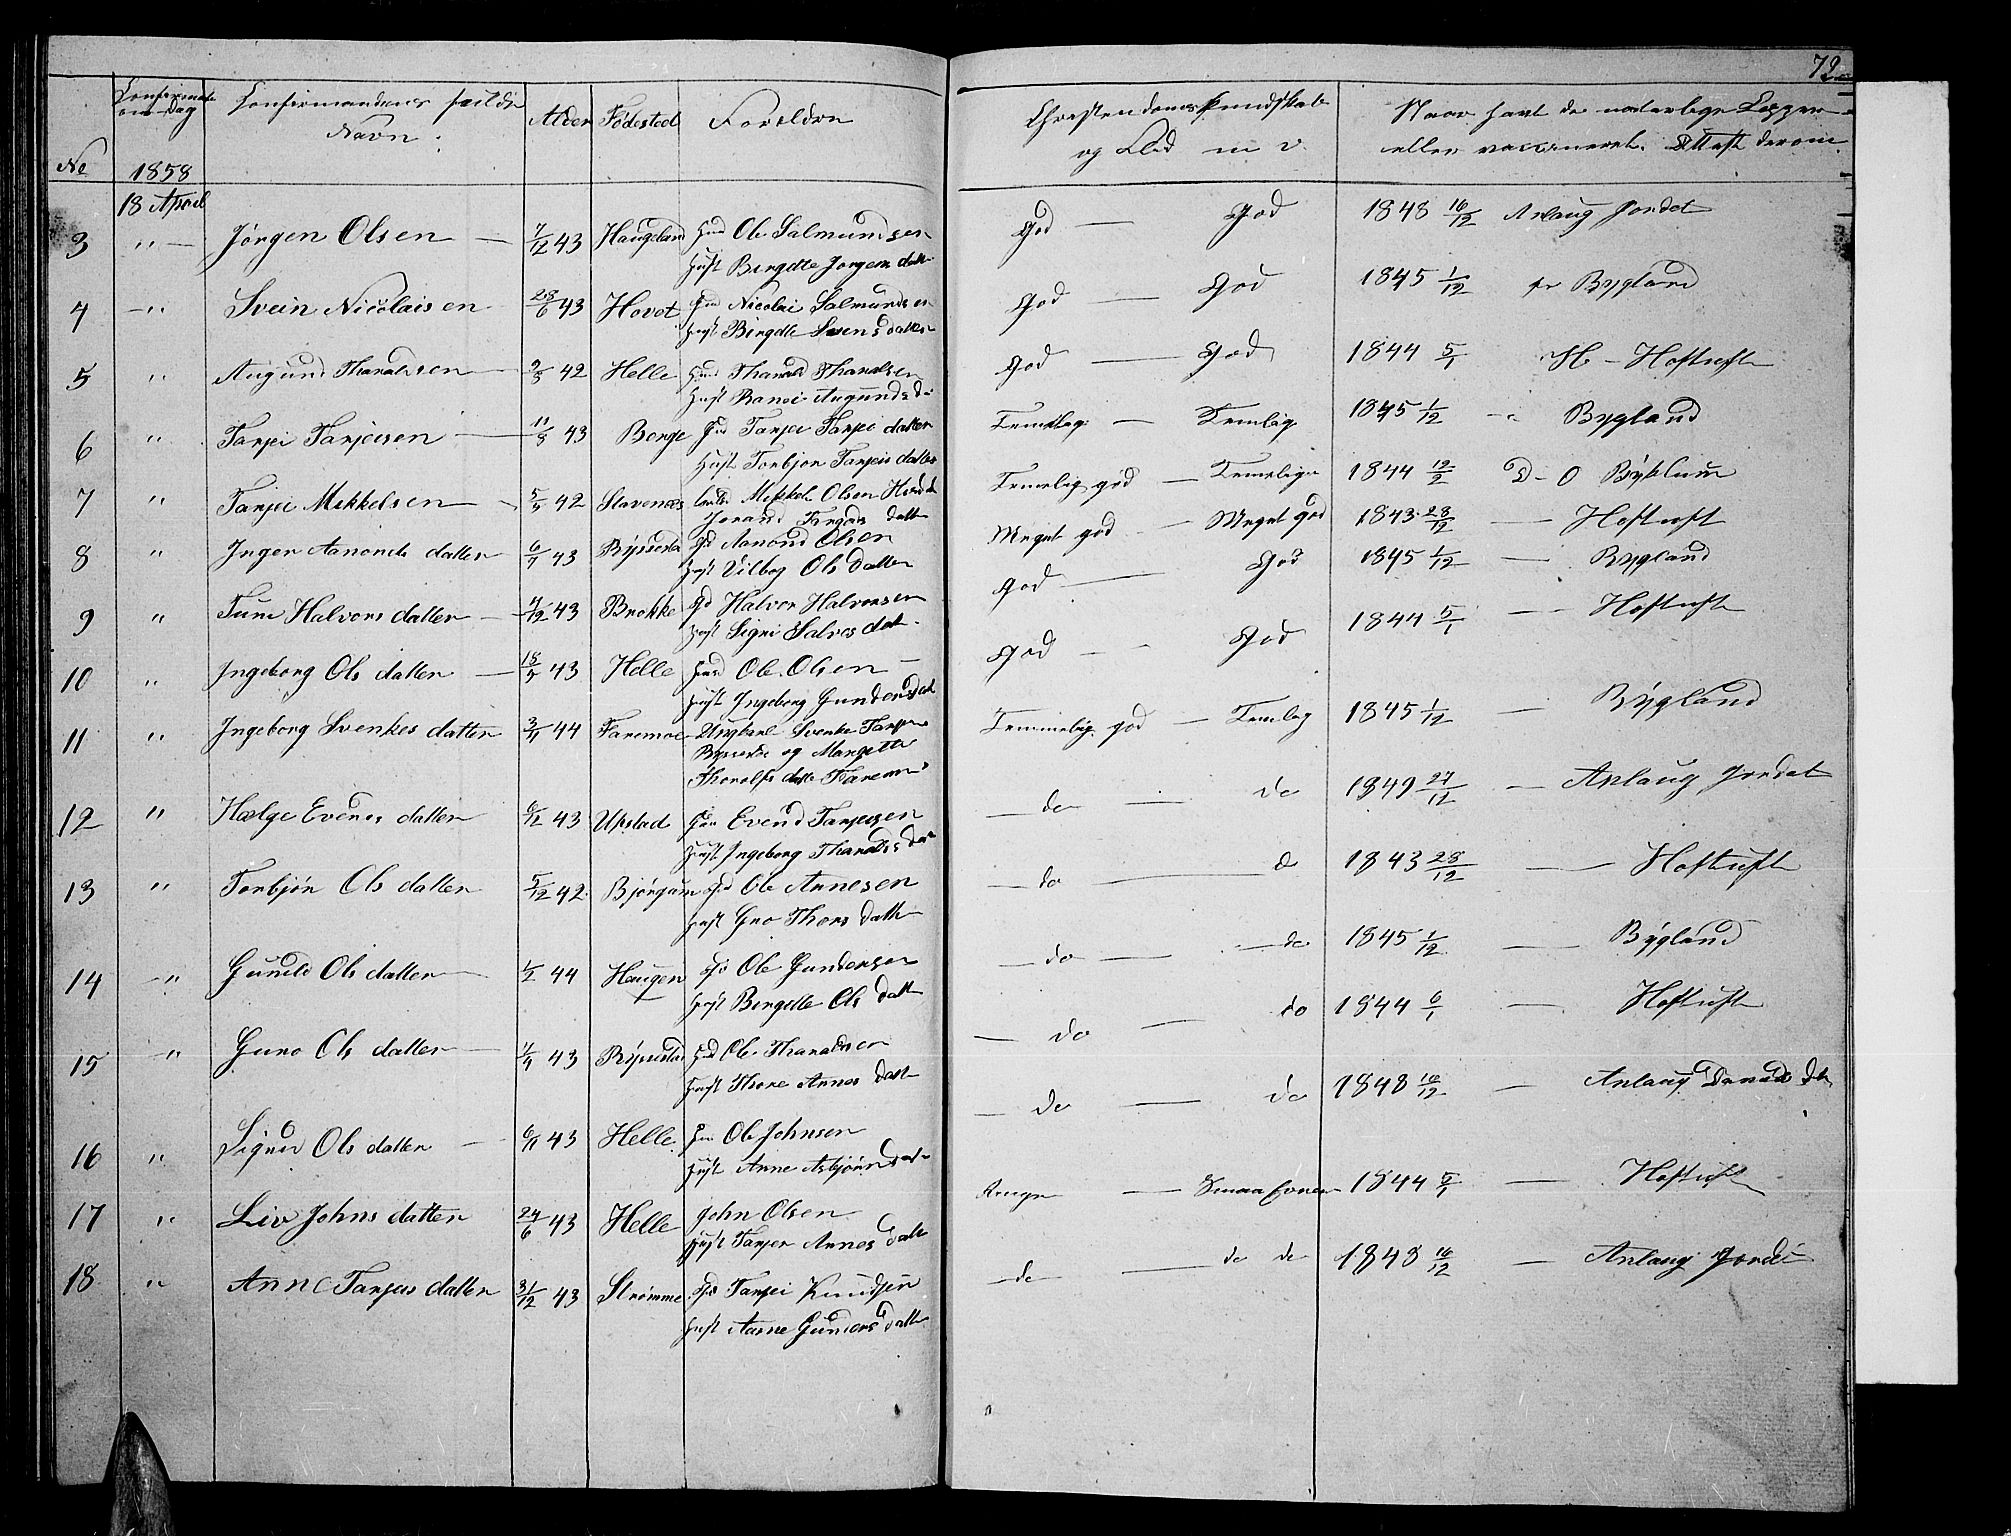 72
No
Confirmations Dag
Confirmandens fulde Navn:
Alder
Fødested
Foreldre
Christendoms Kundskab og Flid m v.
Naar havt de naturlige Kopper eller vaccineret. Attest derom.
1858
18 April
3 " Jørgen Olsen 7/12 43 Haugeland Gmd Ole Salmundsen
Hust Birgitte Jorgens datt
God — God 1848 16/12 Anlaug Jordet
4 " Svein Nicolaisen 28/6 43 Hovet Gmd Nicolai Salmundsen
Hust Birgitte Svens datter
God — God 1845 1/12 Bygland
5 " Augund Thoraldsen 42 Helle Gmd Tharald Tharalsen
Hust Ranei Augunds d:
God — God 1844 5/1 H - Hoftuft
6 " Tarjei Tarjeisen 11/8 43 Berge Tarjei Tarjei datter
Hust Torbjør Tarjeis datter
Temelig — Temlig 1845 1/12 " Bygland
7 " Tarjei Mikkelsen 42 Stavenæs Mikkel Olsen
Jorand datt
Temelig god — Temelige 1844 12/2 D - O Býklum
8 " Inger Aanonds datter 43 Rýsstad Gd Aanond Olsen
Hust Vilbog Ols datter
Meget god — Meget god 1843 28/12 — Hoftuft
9 " Tune Halvors datter 43 Brokke Gd Halvor Halvorsen
Hust Signi Salves dat
God — God 1845 1/12 — Bygland
10 " Ingeborg Ols datter — 43 Helle Gmd Ole Olsen —
Hust Ingeborg Gunders dat
God — God 1844 5/1 — Hoftuft
11 " Ingeborg Svenkes datter 3/1 44 Faremoe Ungkarl Svenke Tarjei
og Margitte
Thorolfs datt Faremo
Temmelig god — Temlig 1845 1/12 — Býgland
12 " Hælge Evens datter 43 Upstad Evend Tarjeisen
Hust Ingeborg Tharalds dat
— do — do 1849 27/12 — Anlaug Jordet
13 " Torbjör Ols datter 5/12 42 Bjórgum Gd Ole Annesen
Hust Gro Thors datt
— do — d 1843 28/12 — Hoftuft
14 " Gunild Ols datter 44 Haugen Ole Gundersen
Hust Birgitte Ols datt
— do — do 1845 1/12 — Býgland
15 " Guro Ols datter 43 Rýsstad Gmd Ole Tharaldsen
Hust Thore Annes datt
— do — do 1844 6/1 — Hoftuft
16 " Sigrid Ols datter 43 Helle Ole Johnsen
Hust Anne Asbjörns dat
— do — do 1848 16/12 — Anlaug
17 " Liv Johns datter 24/6 43 Helle John Olsen
Hust Tarjer Annes datt
— 1844 5/1 — Hoftuft
18 " Anne Tarjeis datter 31/12 43 Strømme Tarjei Knudsen
Hust Aasne Gunders datt
— do — do do 1848 16/12 — Anlaug Jorde